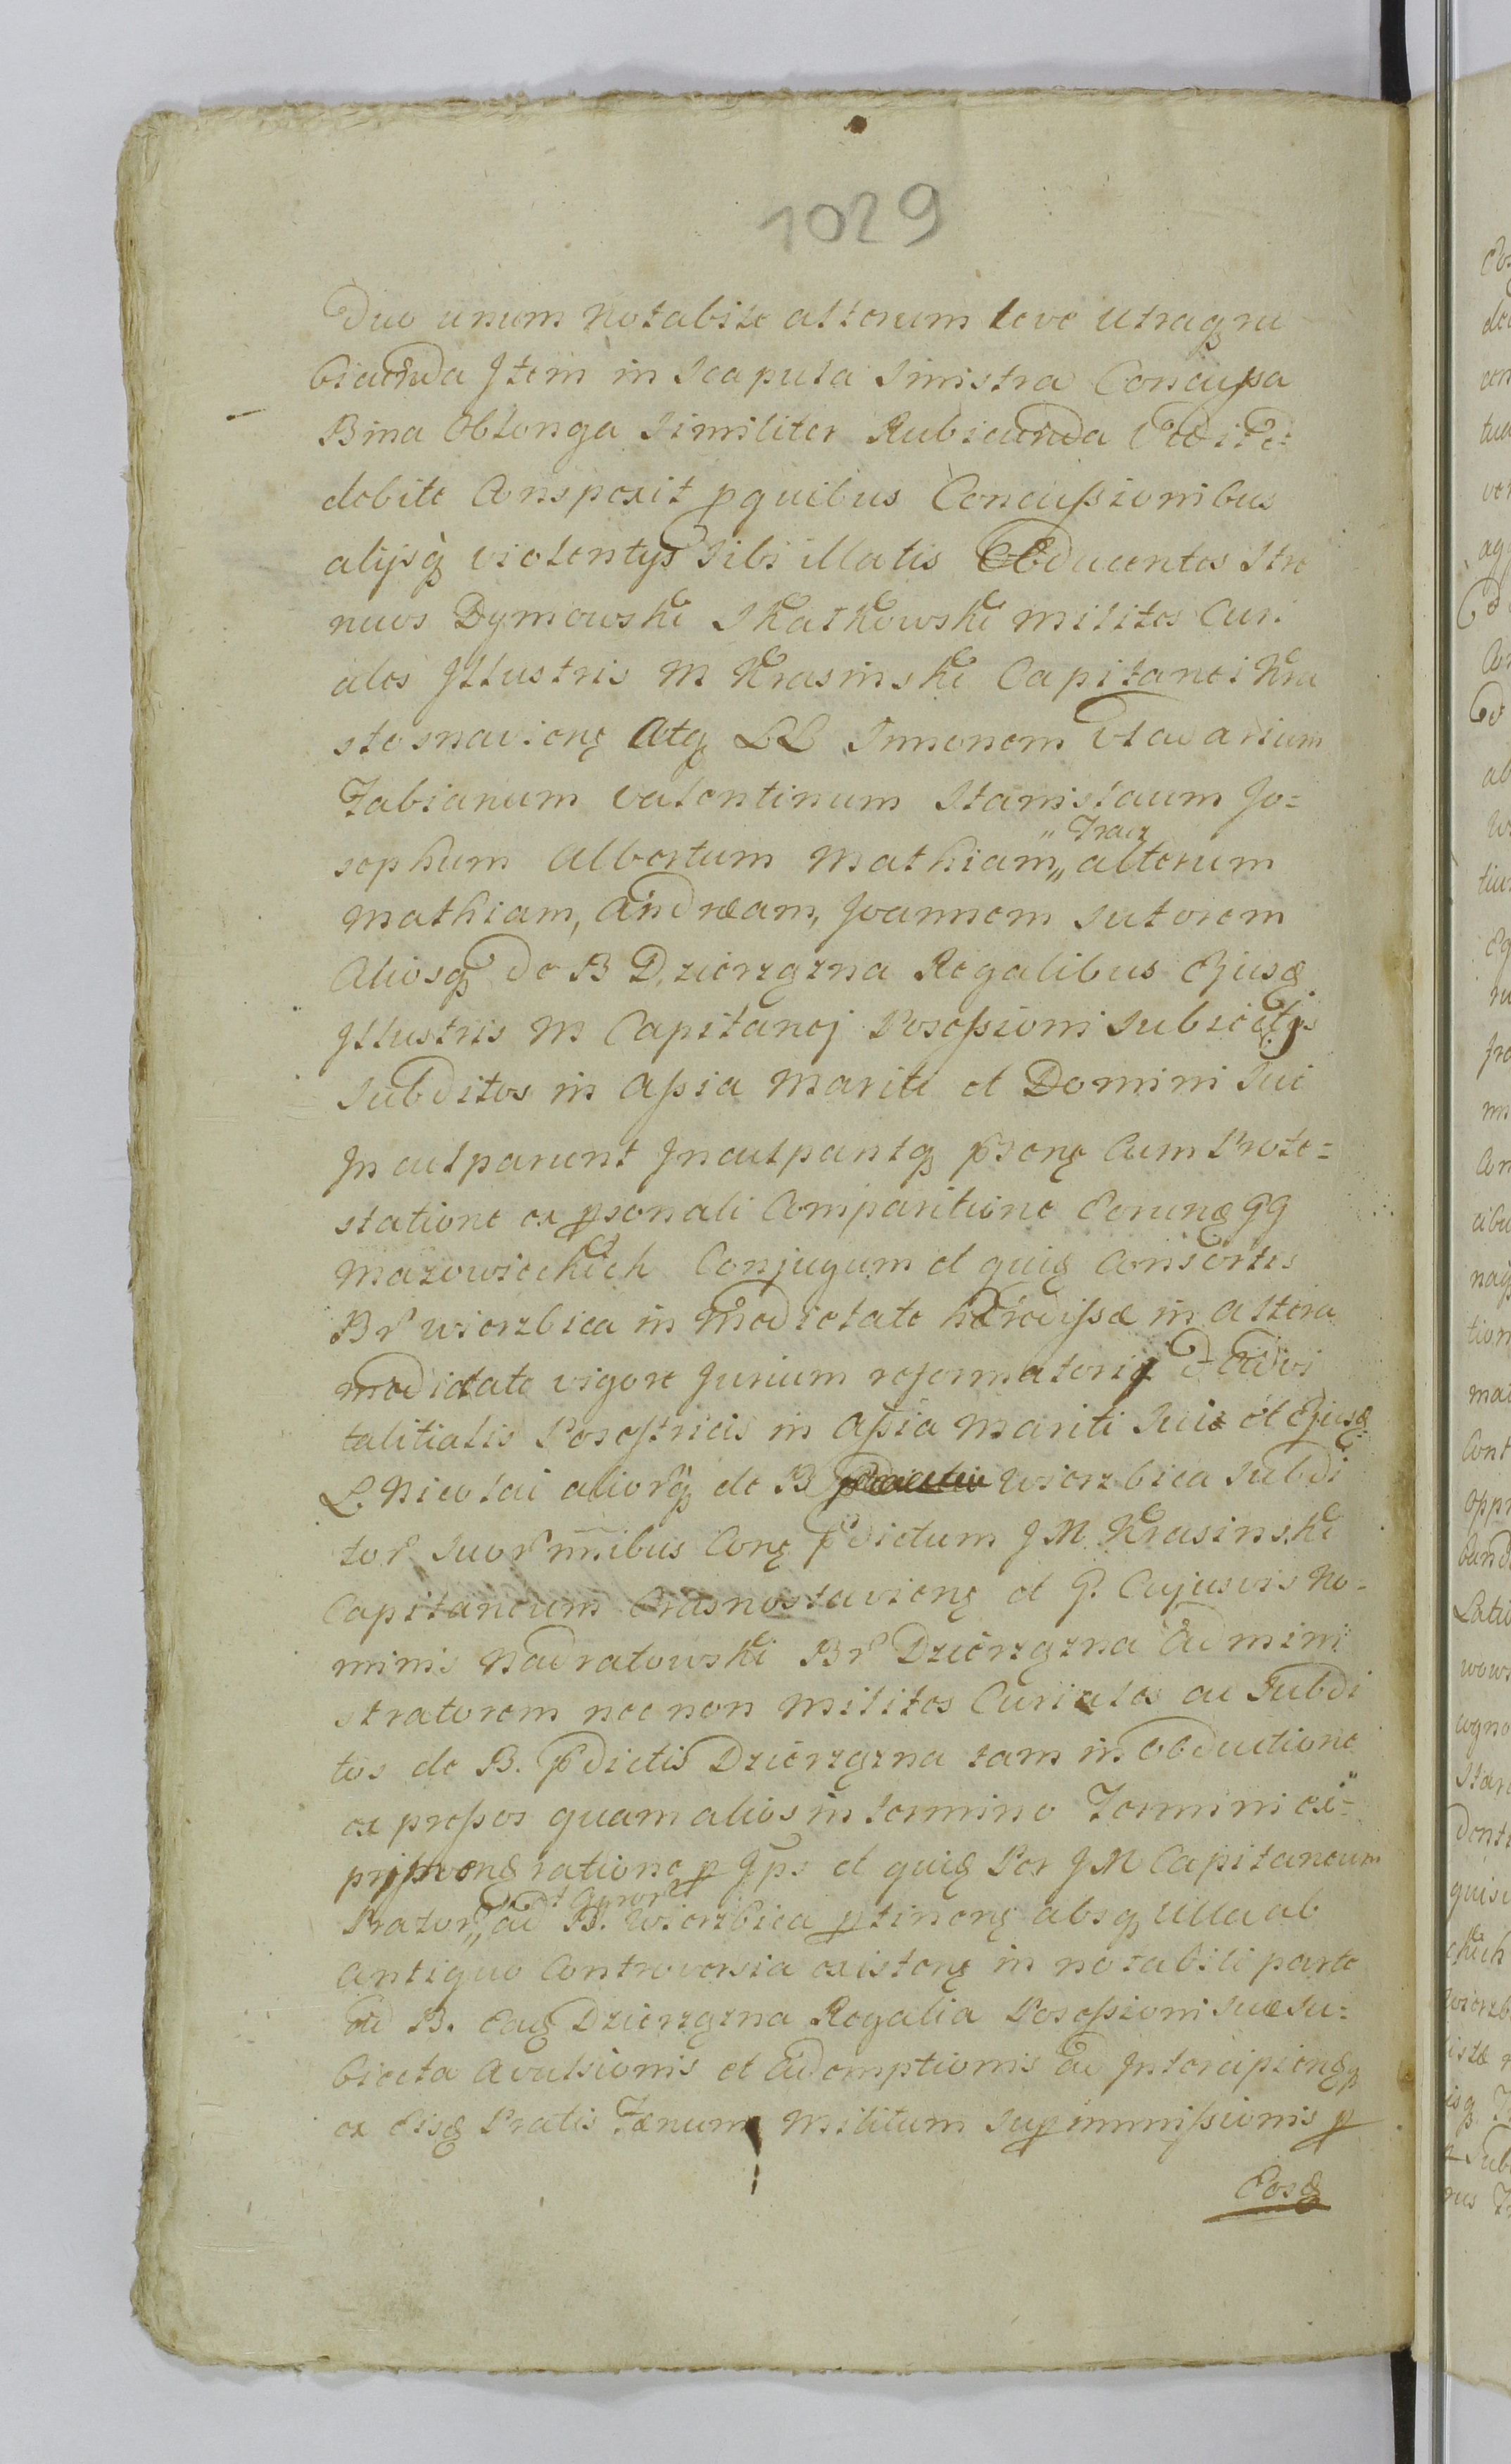 1029
Duo unum Notabile alterum leve utraqȝ ru
bicunda Item in Scapula Sinistra Concussa
Bina Oblonga Similiter Rubicunda Vidit et
debite Conspexit p quibus Concussionibus
alijsqȝ violentys sibi illatis Obducentes Stre
nuos Dymowski Skarkowski milites Curi
ales Illustris M Krasinski Capitanei Kra
snostavienę Atqȝ LL Simonem Vlasarium
Fabianum Valentinum Stanislaum Jo=
sephum Albertum Mathiam „ alterum
„ Tracz
Mathiam, Andræam, Joannem Sutorem
Aliosqȝ de B Dzierzązna Regalibus Ejusę
Illustris M Capitanej Possessioni Subiectis
Subditos in Assia Mariti et Domini Sui
Inculparunt Inculpantqȝ psonę Cum Prote=
statione ex psonali Comparitione Eorunę GG
Mazowieckich Conjugum et quię Consortis
Br Wierzbica in Medietate hærædissæ in altera
medietate vigore Jurium reformatorij et advi
talitialis Possessricis in Assia Mariti Sui et Ejusę
L. Nicolai aliorqȝ de B Wierzbica Subdi
tor Suor nnibus Conę pdictum J M. Krasinski
Capitaneum Crasnostavienę et G. Cujusvis No-
minis Nadratowski Br Dzierzązna Admini
stratorem nec non milites Curiales ac Subdi
tos de B. pdictis Dzierzązna tam in obductione
ex pressos quam alios in termino Termini exi=
primenę ratione p Ips et quię Per J M Capitaneum
Prator „ ad B. Wierzbica ptinenę absqȝ Ulla ab
et Agror
antiquo Controversia existenę in notabili parte
Ad B. Eaę Dzierzązna Regalia Possessioni Suæ Su=
biecta Avulsionis et Ademptionis ac Intercipienę
ex Eisę Pratis Fænum Militum Sup immissionis p
Eosę